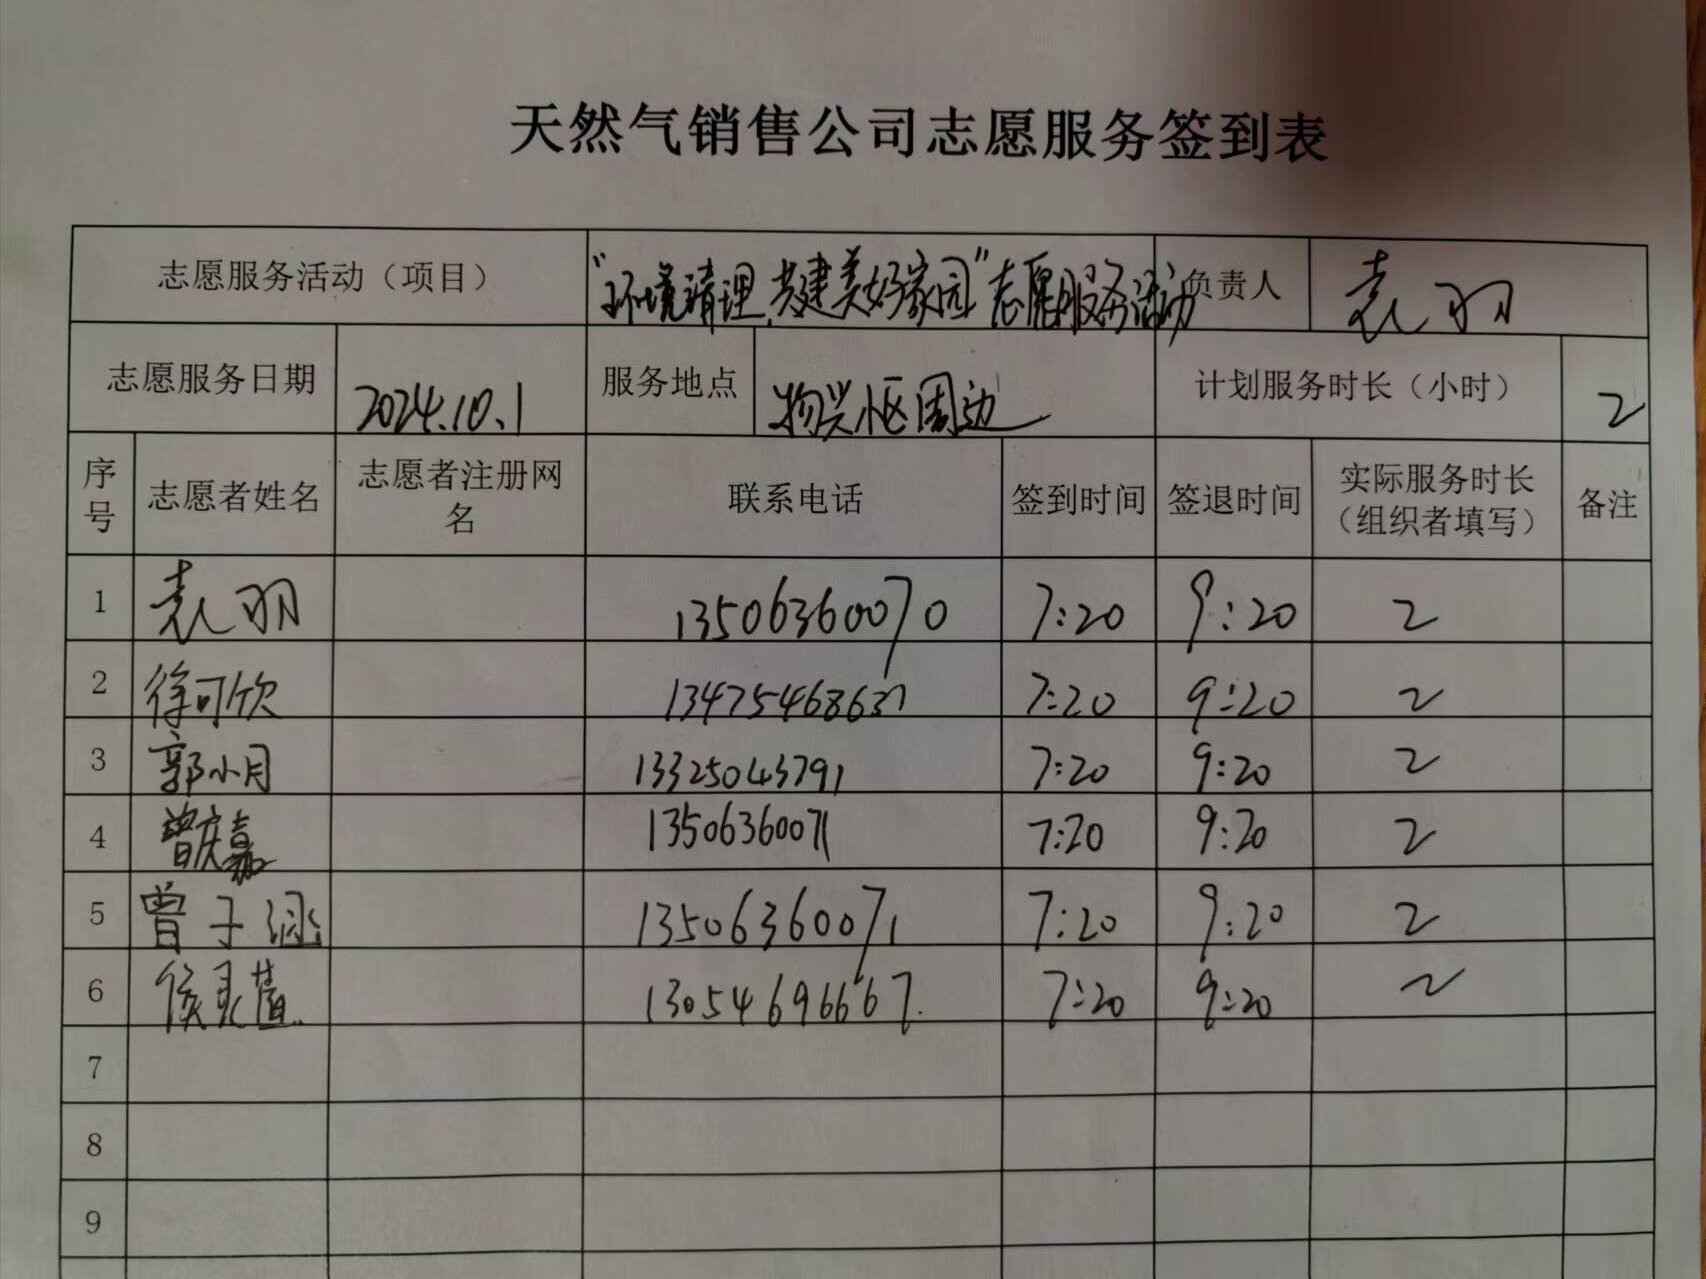 天然气销售公司志愿服务签到表
志愿服务活动（项目） “环境清理,共建美好家园”志愿服务活动 负责人 袁羽
志愿服务日期 2024.10.1 服务地点 周边 计划服务时长（小时） 2
序号 志愿者姓名 志愿者注册网名 联系电话 签到时间 签退时间 实际服务时长（组织者填写） 备注
1 袁羽 13506360070 7:20 9:20 2
2 徐可欣 13475468637 7:20 9:20 2
3 郭小月 13325043791 7:20 9:20 2
4 曾庆嘉 13506360071 7:20 9:20 2
5 曾子涵 13506360071 7:20 9:20 2
6 13054696667 7:20 9:20 2
7
8
9